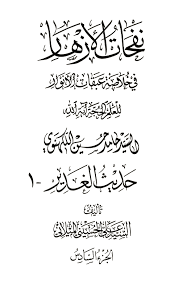 نفحات الأزهار
في خلاصة عبقات الأنوار
للعلم الحجة آية الله
السيد حامد حسين اللكهنوي
حديث الغدير - ١
تأليف
السيد علي الحسيني الميلاني
الجزء السادس